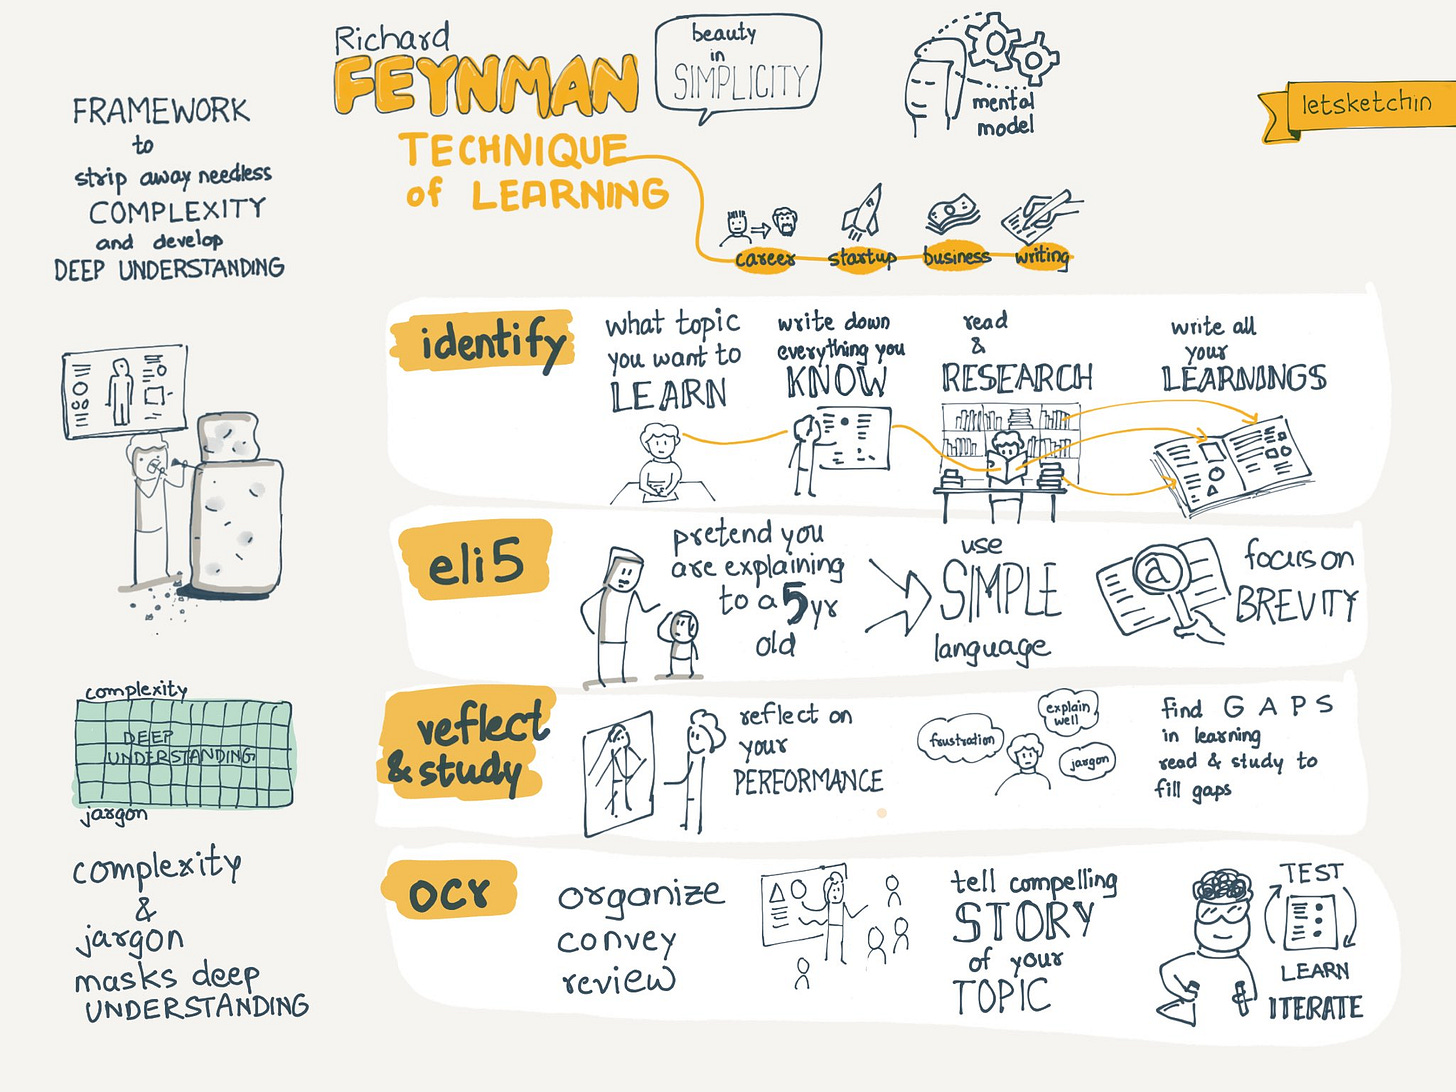 Richard
FEYNMAN
TECHNIQUE
of LEARNING
beauty
in
SIMPLICITY
mental
model
letsketchin
career
startup
business
writing
FRAMEWORK
to
strip away needless
COMPLEXITY
and develop
DEEP UNDERSTANDING
complexity
DEEP
UNDERSTANDING
jargon
complexity
&
jargon
masks deep
UNDERSTANDING
identify
what topic
you want to
LEARN
write down
everything you
KNOW
read
&
RESEARCH
write all
your
LEARNINGS
eli5
pretend you
are explaining
to a 5yr
old
use
SIMPLE
language
a
focus on
BREVITY
reflect
& study
reflect on
your
PERFORMANCE
frustration
explain
well
jargon
find GAPS
in learning
read & study to
fill gaps
ocr
organize
convey
review
tell compelling
STORY
of your
TOPIC
TEST
LEARN
ITERATE